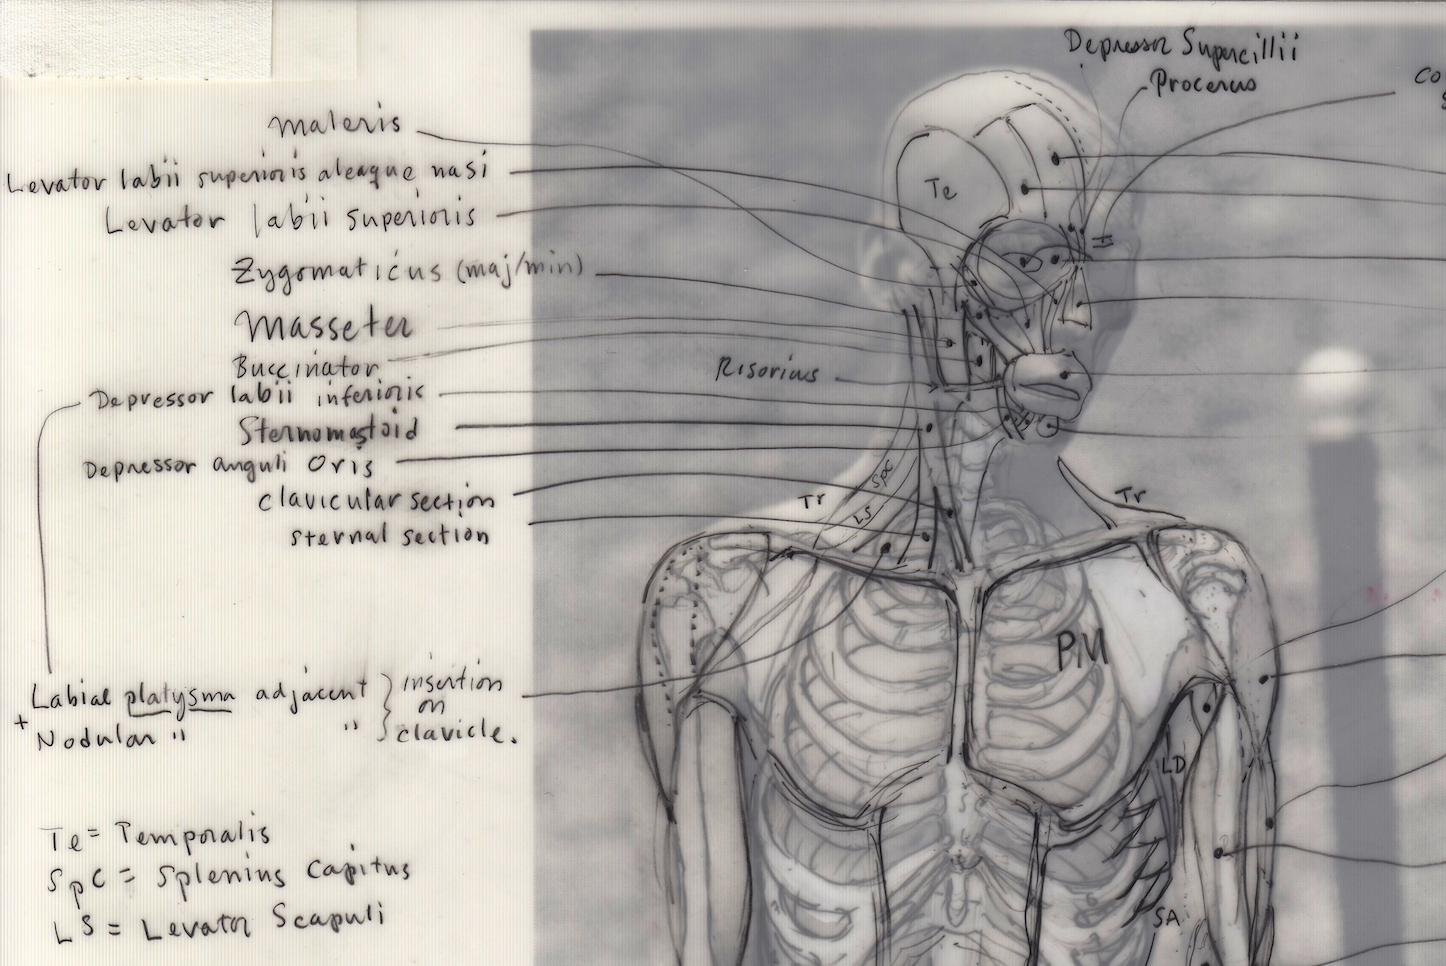 Depressor Supercillii
Procerus
Co
S
Maleris
Levator labii superioris aleaque nasi
Levator labii superioris
Zygomaticus (maj/min)
Masseter
Buccinator
Risorius
Depressor labii inferioris
Sternomastoid
Depressor anguli Oris
clavicular section
sternal section
Te
SpC
LS
Tr
Tr
PM
LD
SA
Labial platysma adjacent } insertion
+ Nodular " " } on
clavicle.
Te = Temporalis
SpC = Splenius Capitus
LS = Levator Scapuli